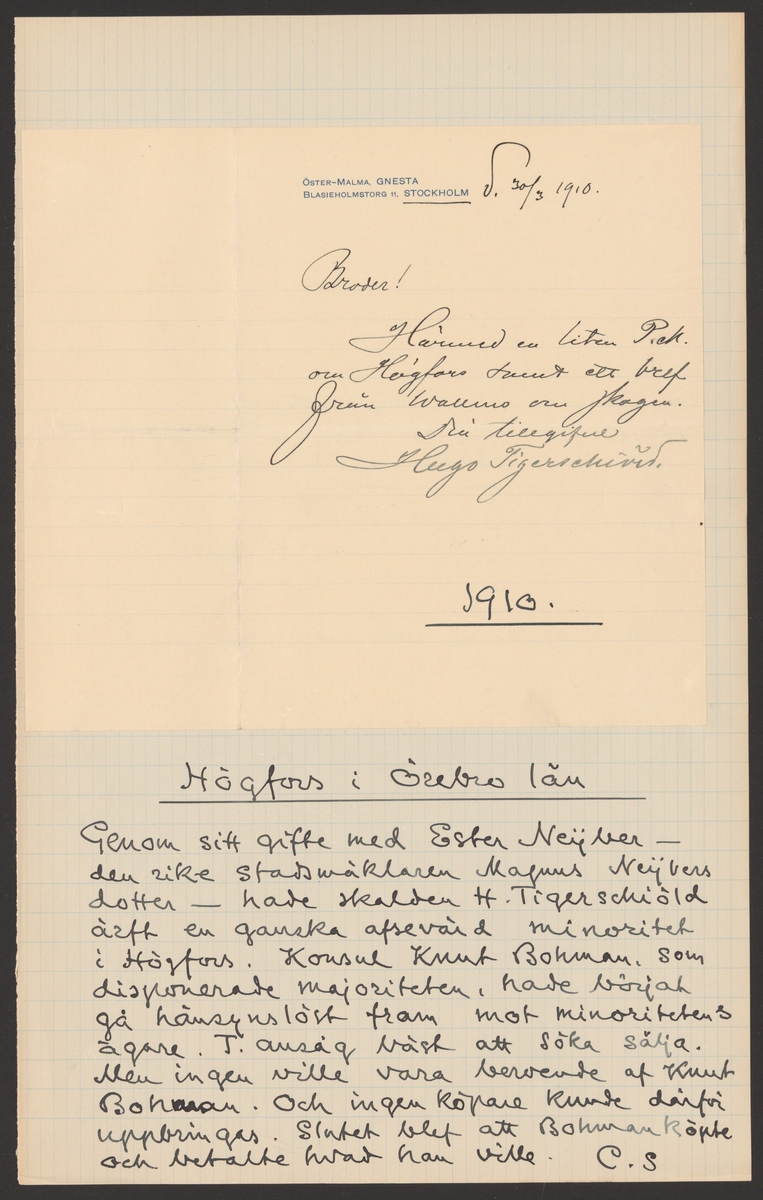 ÖSTER-MALMA, GNESTA
BLASIEHOLMSTORG 11, STOCKHOLM
d. 30/3 1910.
Broder!
Härmed en liten P.M.
om Högfors samt ett bref
från Wallmo om skogen.
Din tillgifne
Hugo Tigerschiöld.
1910.
Högfors i Örebro län
Genom sitt gifte med Ester Neijber —
den rike stadsmäklaren Magnus Neijbers
dotter — hade skalden H. Tigerschiöld
ärft en ganska afsevärd minoritet
i Högfors. Konsul Knut Bohman, som
disponerade majoriteten, hade börjat
gå hänsynslöst fram mot minoritetens
ägare. T. ansåg bäst att söka sälja.
Men ingen ville vara beroende af Knut
Bohman. Och ingen köpare kunde därför
uppbringas. Slutet blef att Bohman köpte
och betalte hvad han ville. C.S